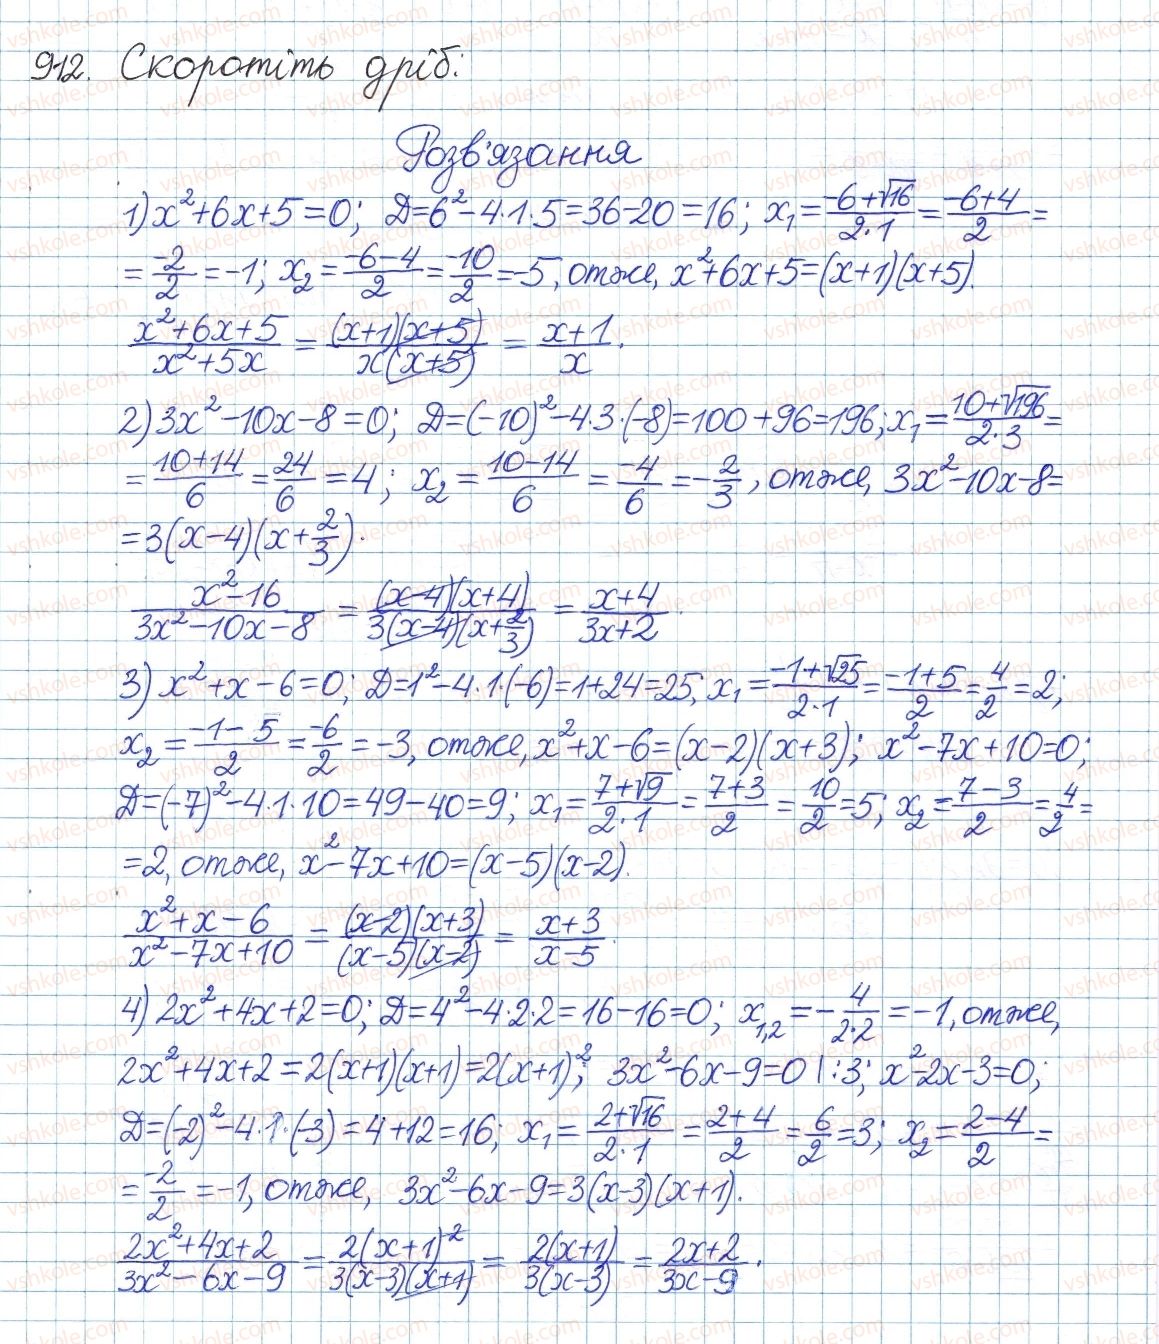 912. Скоротіть дріб:
Розв'язання
1) x²+6x+5=0; D=6²-4·1·5=36-20=16; x₁=(-6+√16)/(2·1)=(-6+4)/2=
=-2/2=-1; x₂=(-6-4)/2=-10/2=-5, отже, x²+6x+5=(x+1)(x+5).
(x²+6x+5)/(x²+5x)=((x+1)(x+5))/(x(x+5))=(x+1)/x.
2) 3x²-10x-8=0; D=(-10)²-4·3·(-8)=100+96=196; x₁=(10+√196)/(2·3)=
=(10+14)/6=24/6=4; x₂=(10-14)/6=-4/6=-2/3, отже, 3x²-10x-8=
=3(x-4)(x+2/3).
(x²-16)/(3x²-10x-8)=((x-4)(x+4))/(3(x-4)(x+2/3))=(x+4)/(3x+2).
3) x²+x-6=0; D=1²-4·1·(-6)=1+24=25; x₁=(-1+√25)/(2·1)=(-1+5)/2=4/2=2;
x₂=(-1-5)/2=-6/2=-3, отже, x²+x-6=(x-2)(x+3); x²-7x+10=0;
D=(-7)²-4·1·10=49-40=9; x₁=(7+√9)/(2·1)=(7+3)/2=10/2=5; x₂=(7-3)/2=4/2=
=2, отже, x²-7x+10=(x-5)(x-2).
(x²+x-6)/(x²-7x+10)=((x-2)(x+3))/((x-5)(x-2))=(x+3)/(x-5).
4) 2x²+4x+2=0; D=4²-4·2·2=16-16=0; x₁,₂=-4/(2·2)=-1, отже,
2x²+4x+2=2(x+1)(x+1)=2(x+1)²; 3x²-6x-9=0 |:3; x²-2x-3=0;
D=(-2)²-4·1·(-3)=4+12=16; x₁=(2+√16)/(2·1)=(2+4)/2=6/2=3; x₂=(2-4)/2=
=-2/2=-1, отже, 3x²-6x-9=3(x-3)(x+1).
(2x²+4x+2)/(3x²-6x-9)=(2(x+1)²)/(3(x-3)(x+1))=(2(x+1))/(3(x-3))=(2x+2)/(3x-9).
vshkole.com